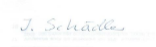 J. Schädler